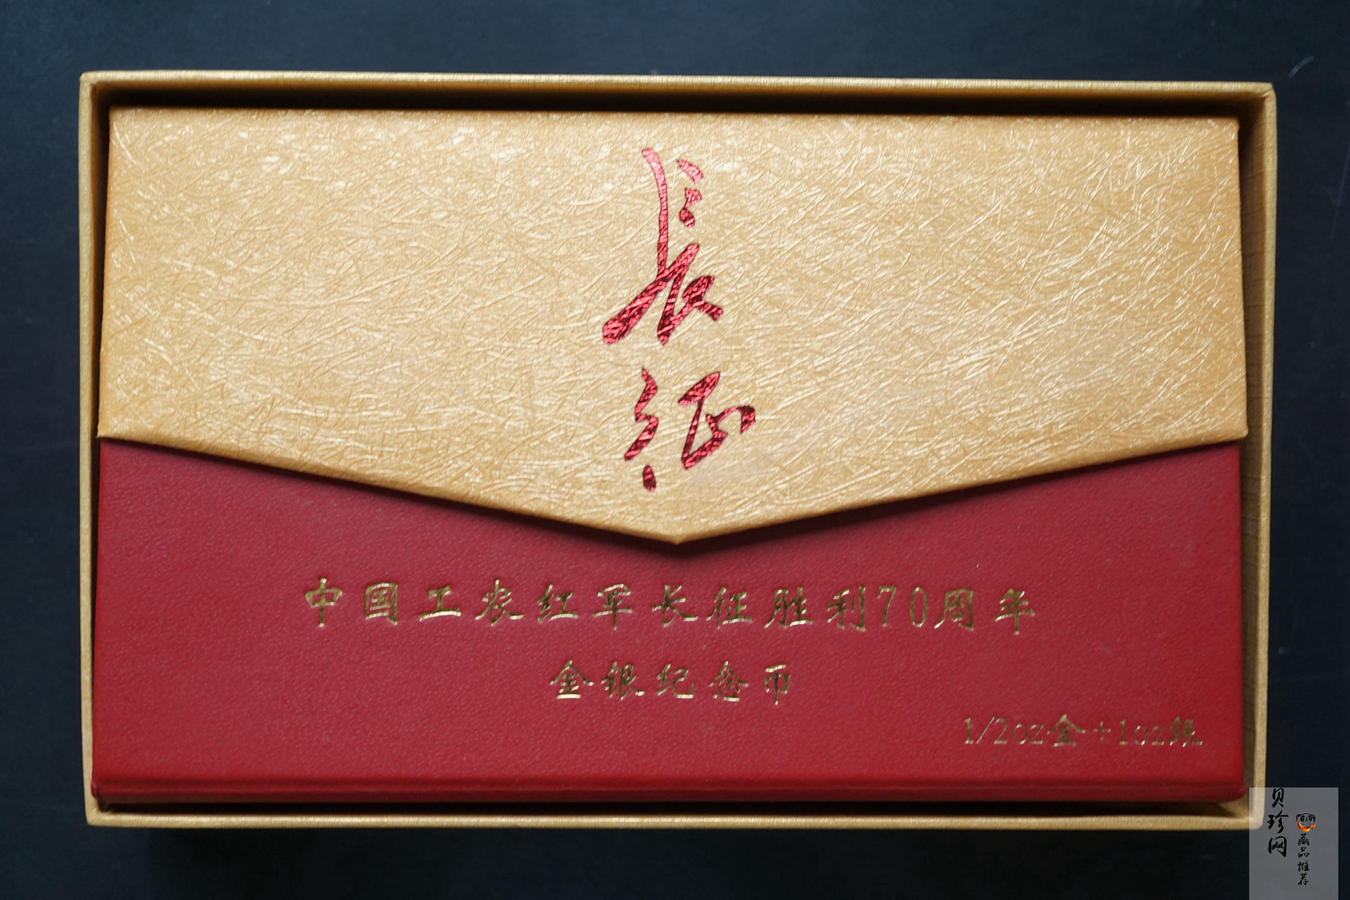 長征
中国工农红军长征胜利70周年
金银纪念币
1/2oz金+1oz银
贝珍网
藏品推荐